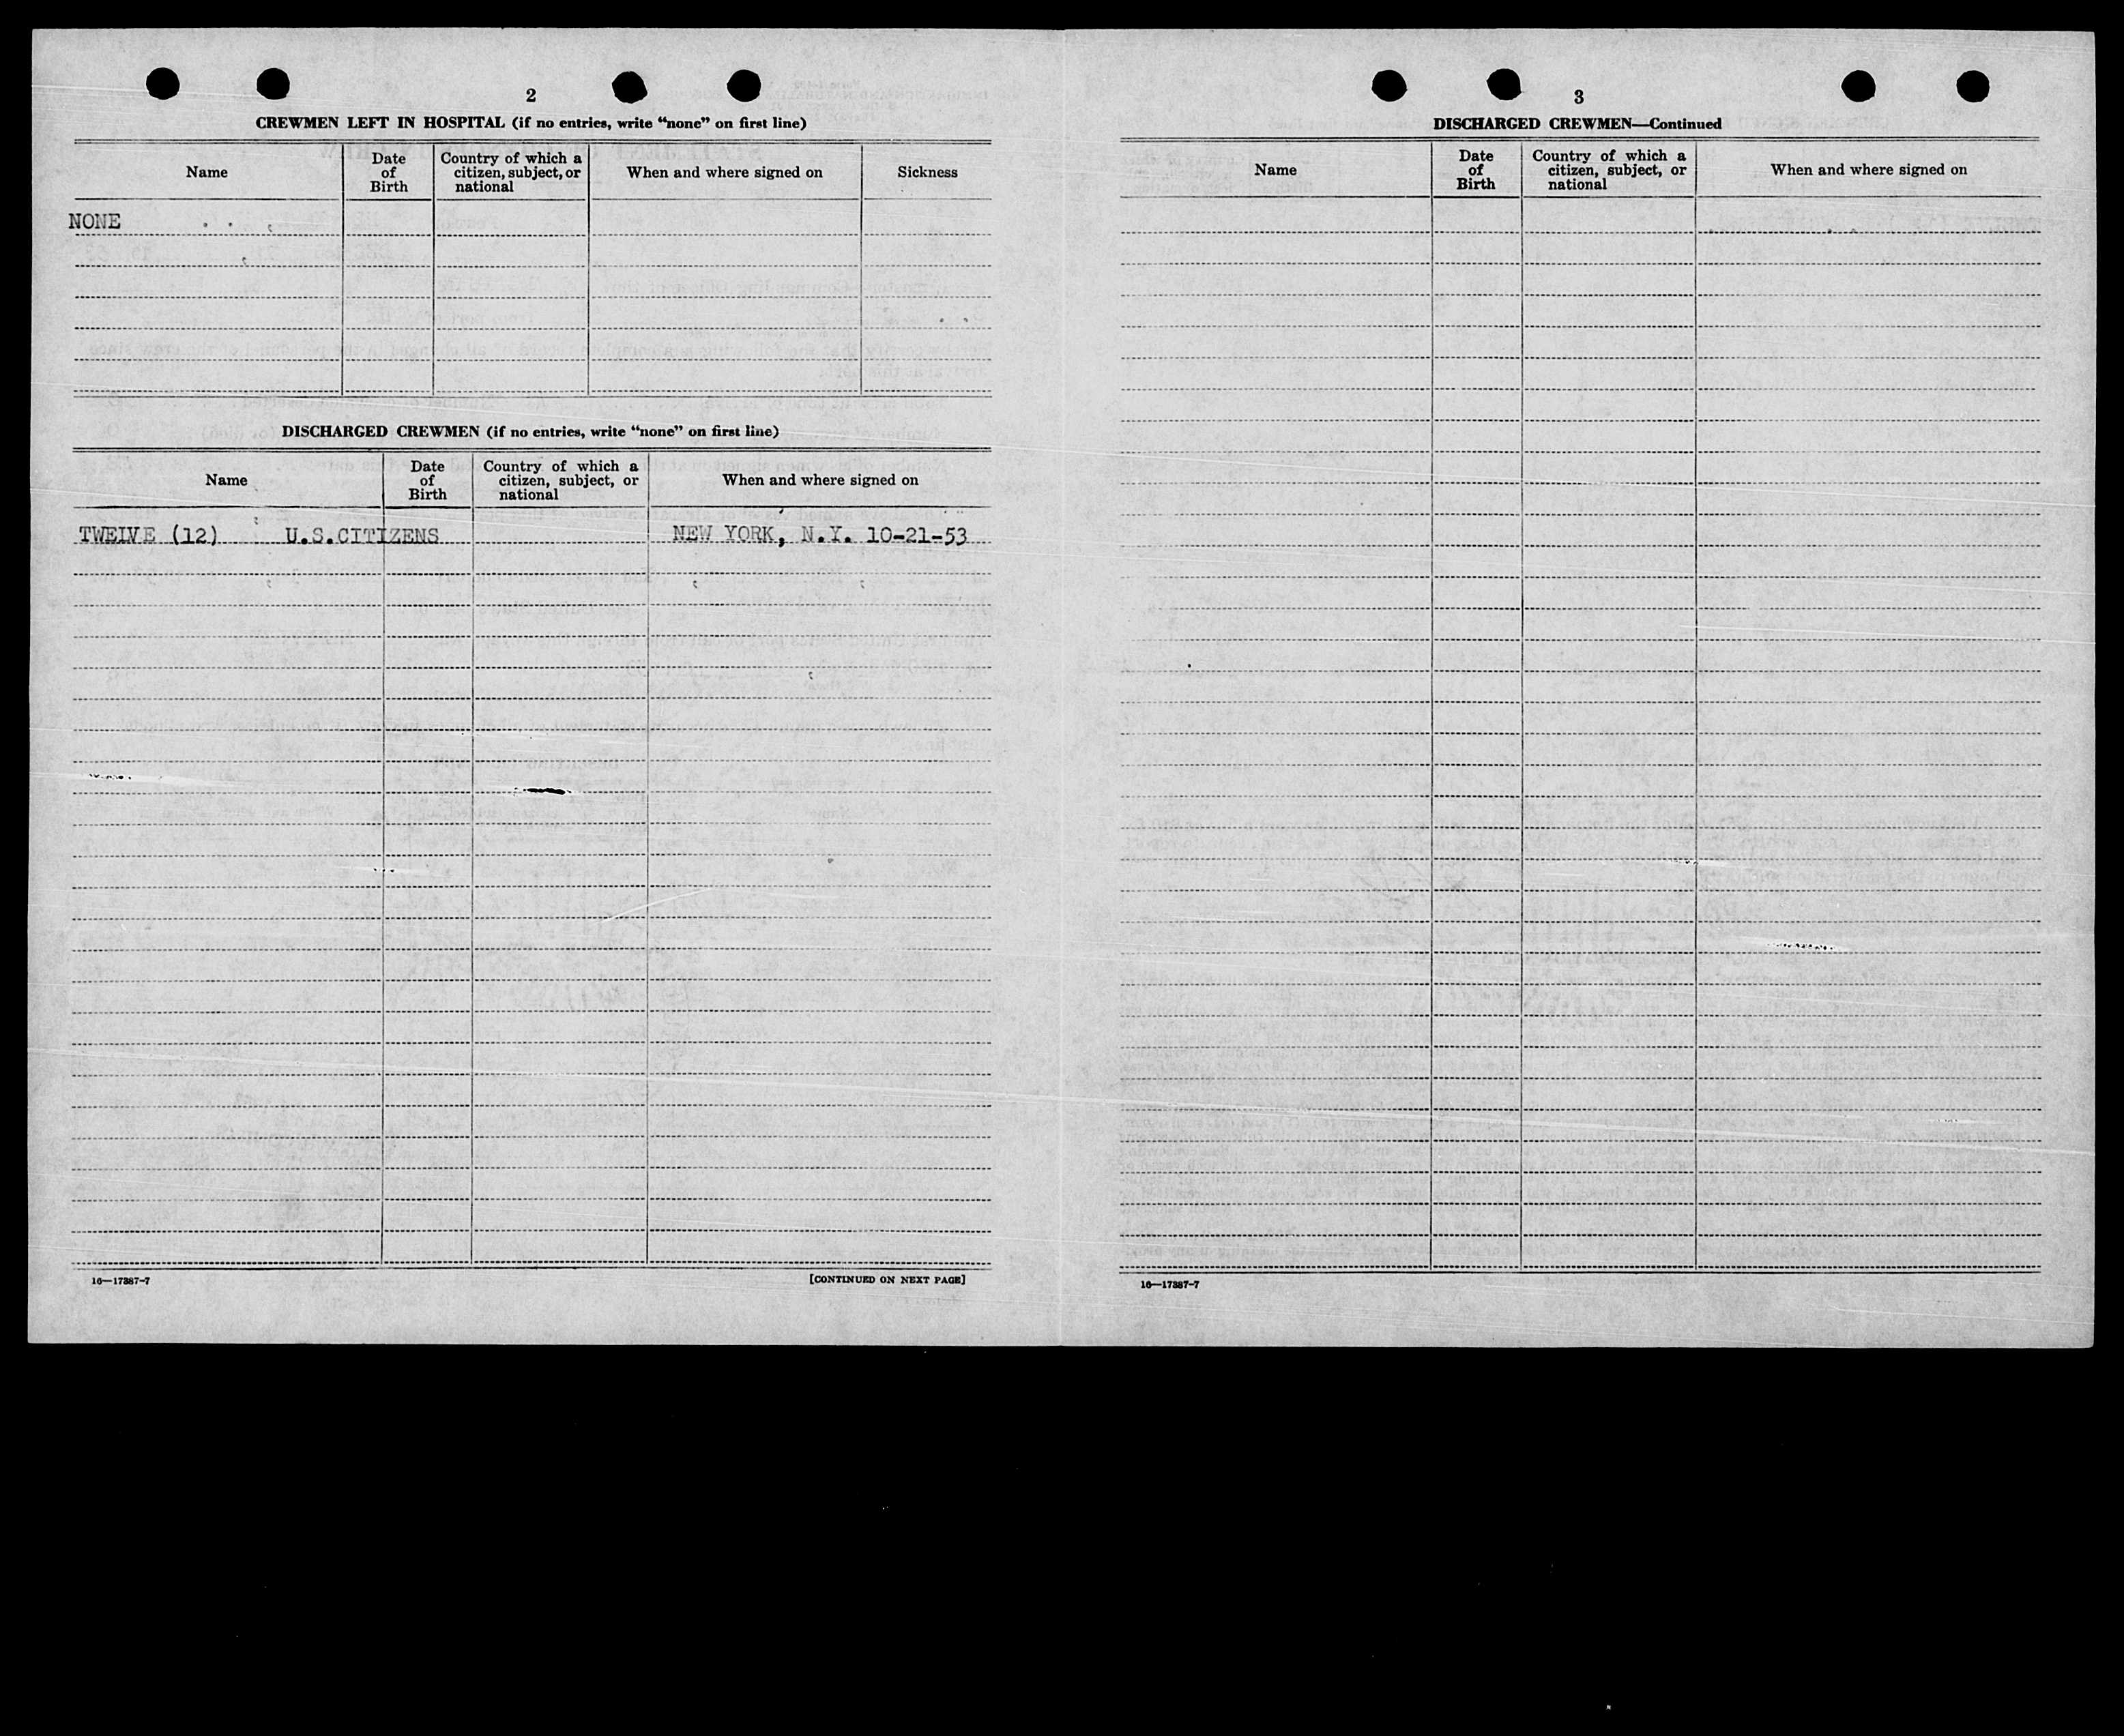 2
CREWMEN LEFT IN HOSPITAL (if no entries, write “none” on first line)
Name
Date of Birth
Country of which a citizen, subject, or national
When and where signed on
Sickness
NONE
DISCHARGED CREWMEN (if no entries, write “none” on first line)
Name
Date of Birth
Country of which a citizen, subject, or national
When and where signed on
TWELVE (12) U.S.CITIZENS NEW YORK, N.Y. 10-21-53
16—17387-7
[CONTINUED ON NEXT PAGE]
3
DISCHARGED CREWMEN—Continued
Name
Date of Birth
Country of which a citizen, subject, or national
When and where signed on
16—17387-7